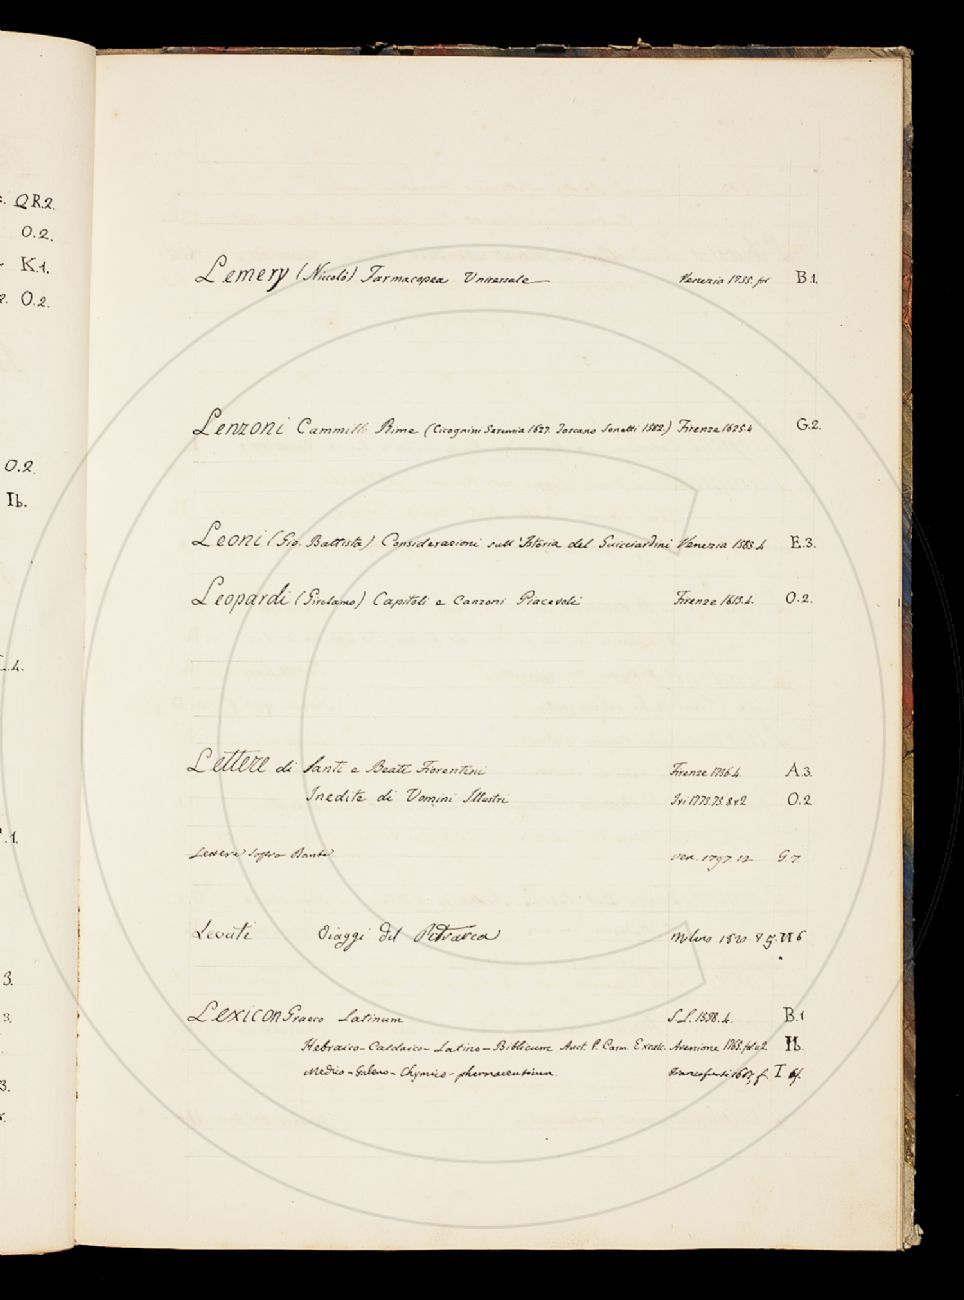 QR.2.
O.2.
K.1.
2. O.2.
O.2.
Ib.
L.4.
.1.
3.
3.
3.
Lemery (Nicolò) Farmacopea Universale Venezia 1735. fol B.1.
Lenzoni Cammillo Rime (Cicognini 1627. Toscano Sonetti 1582.) Firenze 1625.4 G.2.
Leoni (Gio. Battista) Considerazioni sull'Istoria del Guicciardini Venezia 1583.4 E.3.
Leopardi (Girolamo) Capitoli e Canzoni Piacevoli Firenze 1613.4. O.2.
Lettere di Santi e Beati Fiorentini Firenze 1736.4. A.3.
Inedite di Uomini Illustri Ivi 1773.75. 8 v 2 O.2
Lettere sopra Dante Ven. 1797. 12 G.7
Levati Viaggi del Petrarca Milano 1820. 8 5. VI 6
Lexicon Graeco Latinum S.L. 1598.4. B.1
Hebraico-Caldaico-Latino-Biblicum Auct. P. Carm. Excalc. Avenione 1765. fol v 2. Ib.
Medico-Galeno-Chymico-pharmaceuticum. Francofurti f. I